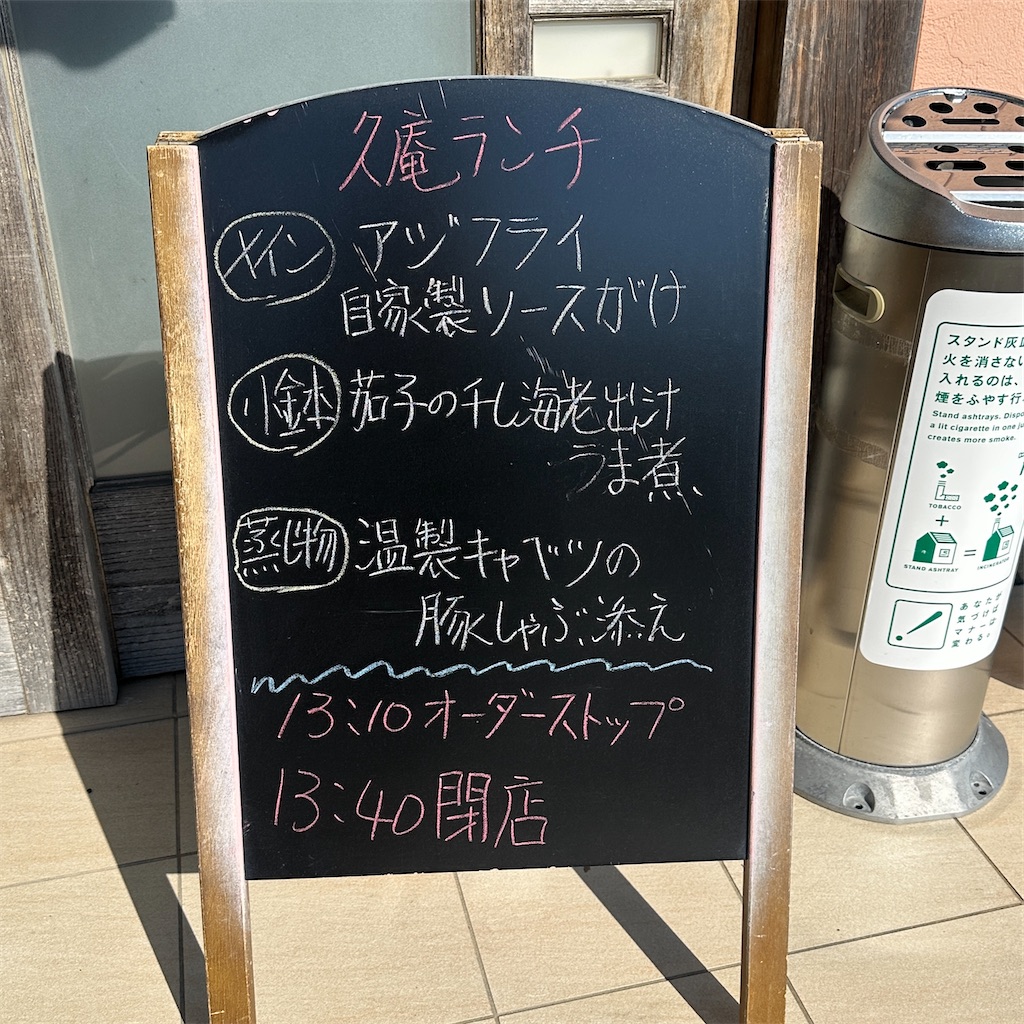 久庵ランチ
メイン アジフライ
自家製ソースがけ
小鉢 茄子の干し海老出汁
うま煮、
蒸し物 温製キャベツの
豚しゃぶ添え
13:10 オーダーストップ
13:40 閉店
スタンド灰皿
火を消さない
入れるのは、
煙をふやす行
Stand ashtrays. Dispo
a lit cigarette in one ju
creates more smoke.
TOBACCO
+
STAND ASHTRAY
=
INCINERATOR
あなたが
気づけば
マナーは
変わる。